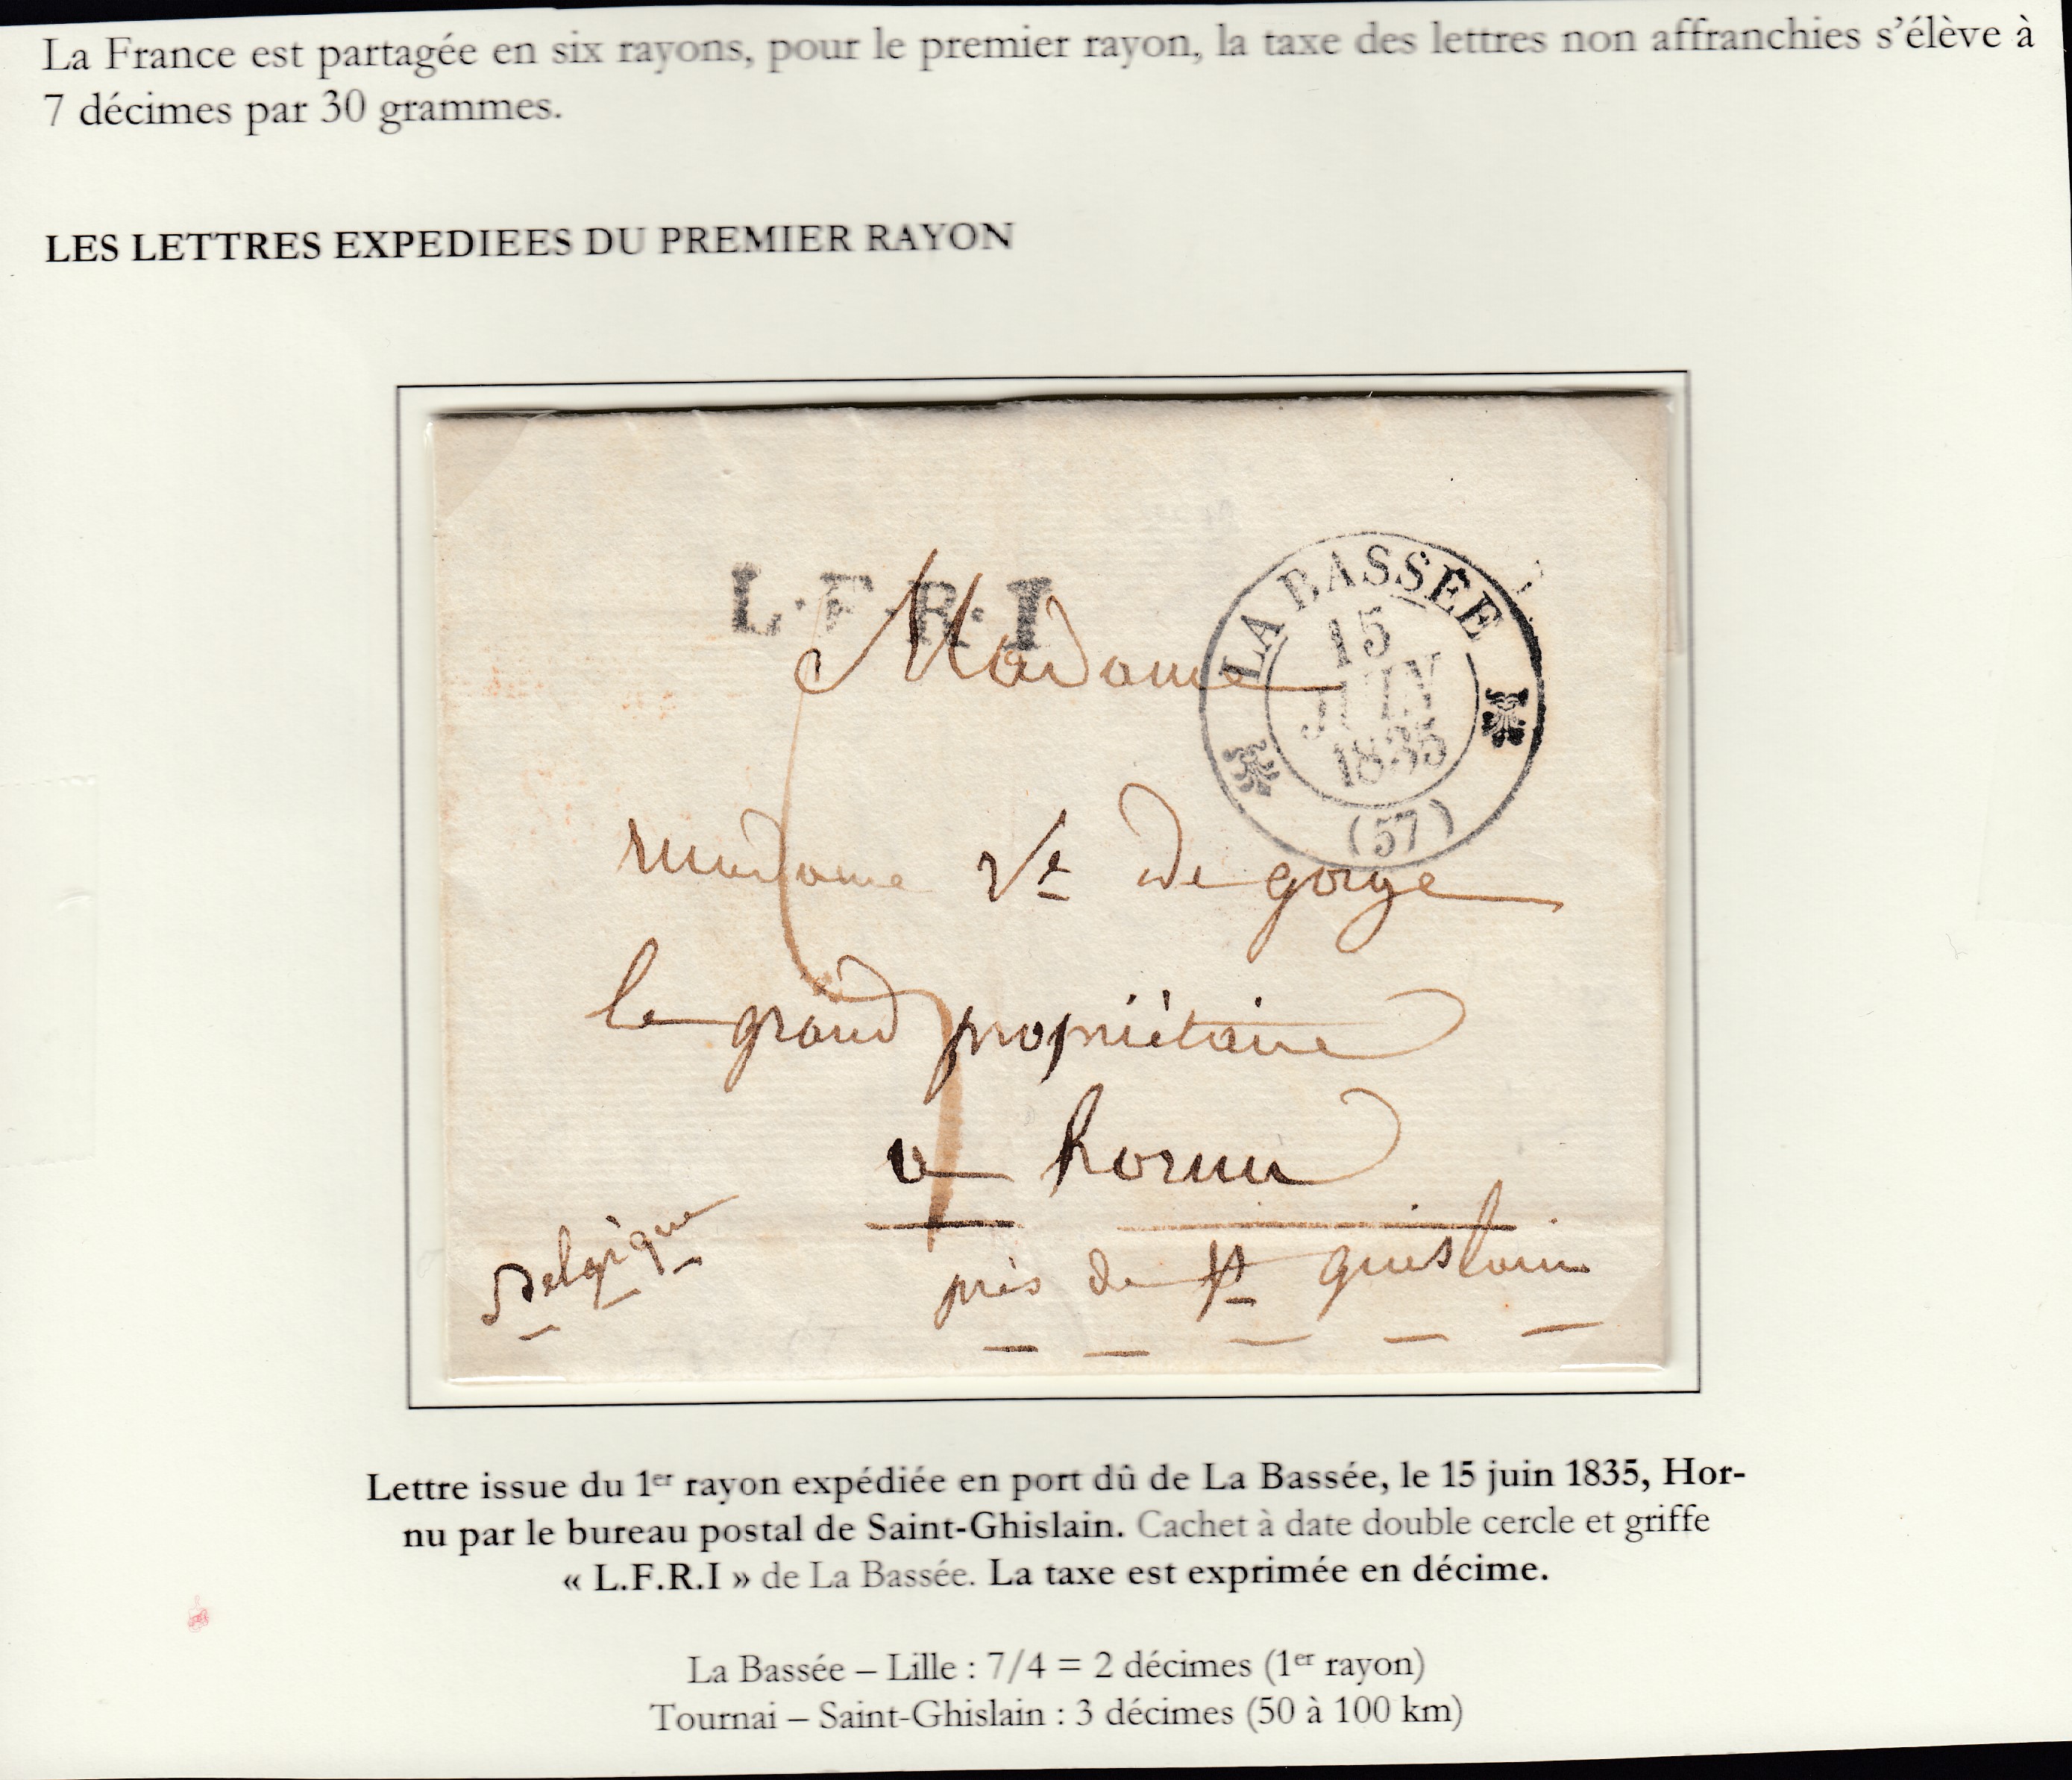 La France est partagée en six rayons, pour le premier rayon, la taxe des lettres non affranchies s'élève à
7 décimes par 30 grammes.
LES LETTRES EXPEDIEES DU PREMIER RAYON
L.F.R.I
LA BASSÉE
15
JUIN
1835
(57)
Madame
madame Ve de gorge
le grand propriétaire
a hornu
Belgique
près de St guislain
Lettre issue du 1er rayon expédiée en port dû de La Bassée, le 15 juin 1835, Hor-
nu par le bureau postal de Saint-Ghislain. Cachet à date double cercle et griffe
« L.F.R.I » de La Bassée. La taxe est exprimée en décime.
La Bassée – Lille : 7/4 = 2 décimes (1er rayon)
Tournai – Saint-Ghislain : 3 décimes (50 à 100 km)